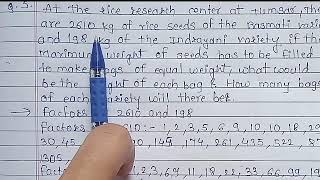 Q.5. At the rice research center at Tumsar, the
are 2610 kg of rice seeds of the Basmati varie
and 198 kg of the Indrayani variety, if the
maximum weight of seeds has to be filled
to make bags of equal weight, what would
be the weight of each bag & How many bags
of each variety will there be?
→ factors 2610 and 198
factors 2610:- 1,2,3,5,6,9,10,10,18,29
30,45, 145, 174, 261, 435, 522, 87
1305,
1,2,3,6,9,11,18,22,33,66,99,19